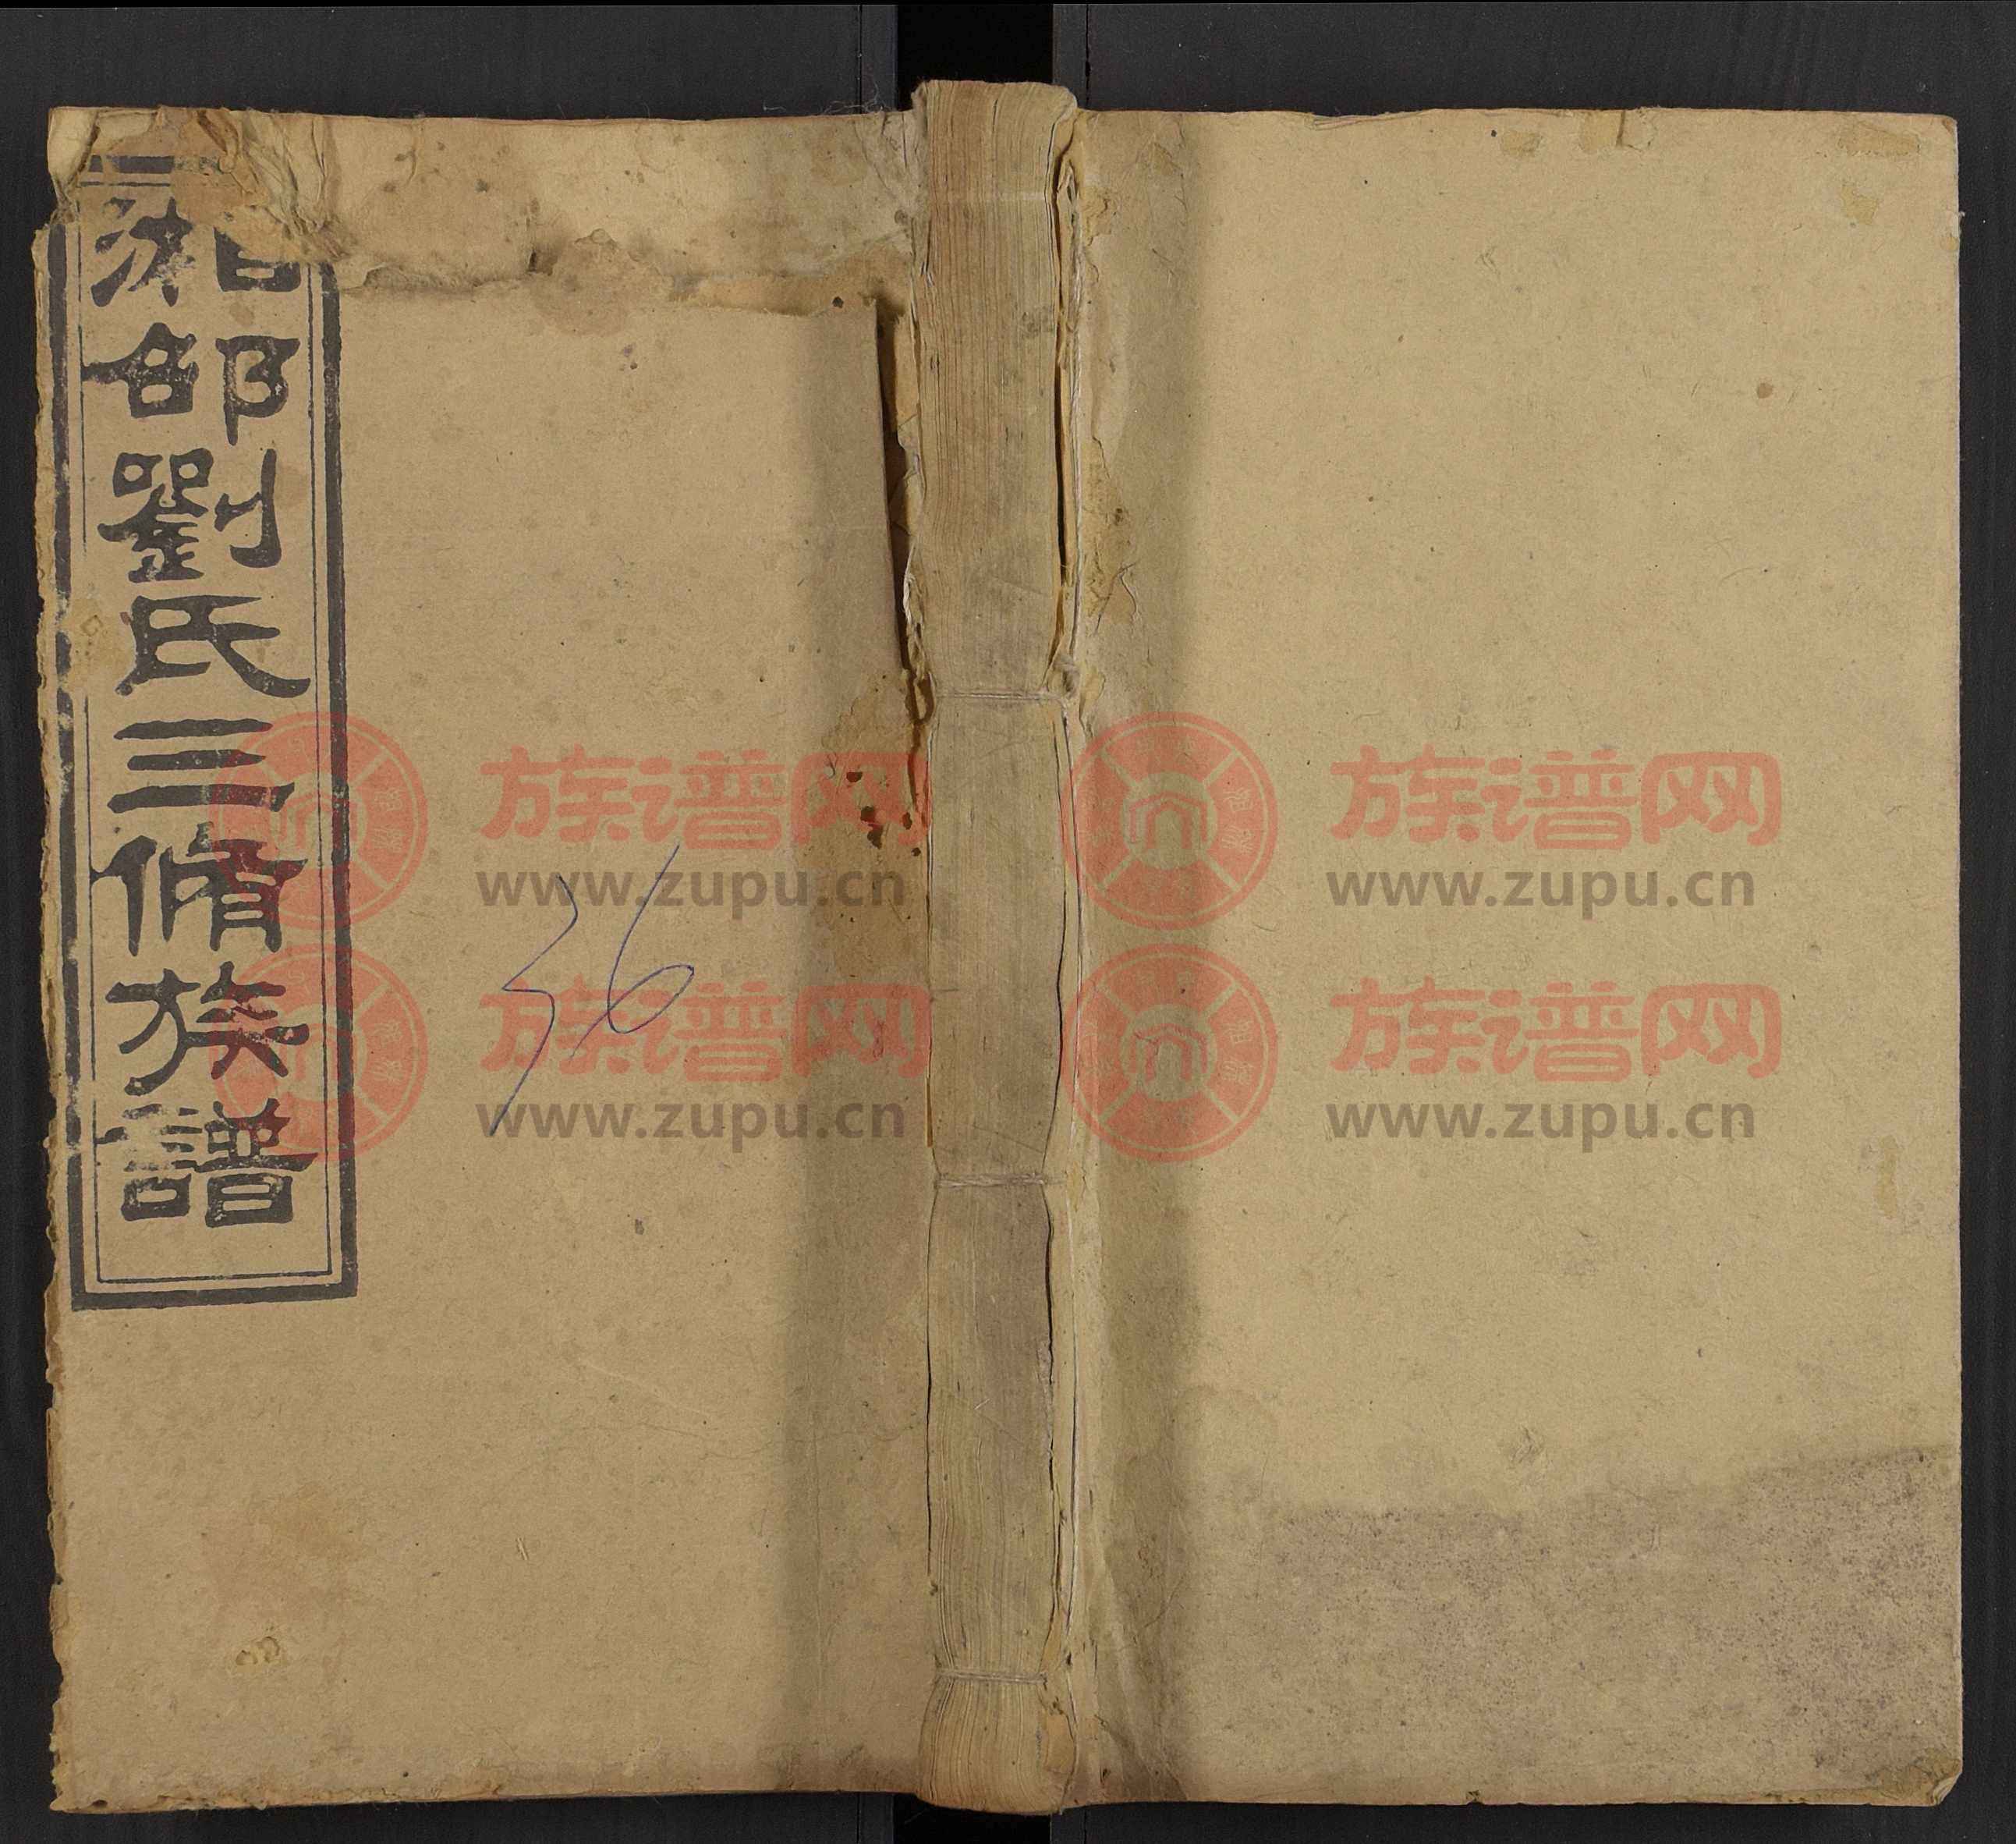 湘邵劉氏三脩族譜
36
族谱网
www.zupu.cn
族谱网
www.zupu.cn
族谱网
www.zupu.cn
族谱网
www.zupu.cn